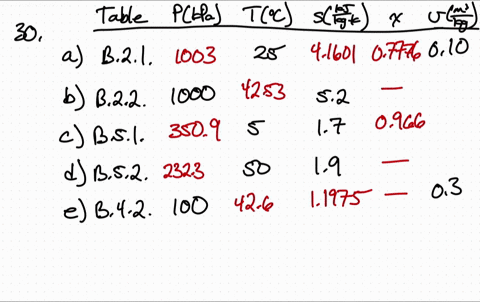 30. Table P(kPa) T(°C) s(kJ/kg·k) x v(m³/kg)
a) B.2.1. 1003 25 4.1601 0.7776 0.10
b) B.2.2. 1000 42.53 5.2 —
c) B.5.1. 350.9 5 1.7 0.966
d) B.5.2. 232.3 50 1.9 —
e) B.4.2. 100 42.6 1.1975 — 0.3